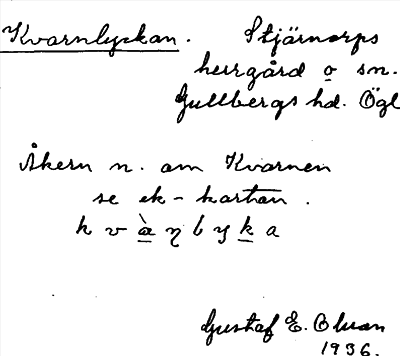 Kvarnlyckan. Stjärnorps
herrgård o sn.
Gullbergs hd. Ögl
Åkern n. om Kvarnen
se ek-kartan.
k v à ŋ l y k a
Gustaf E. Olsson
1936.